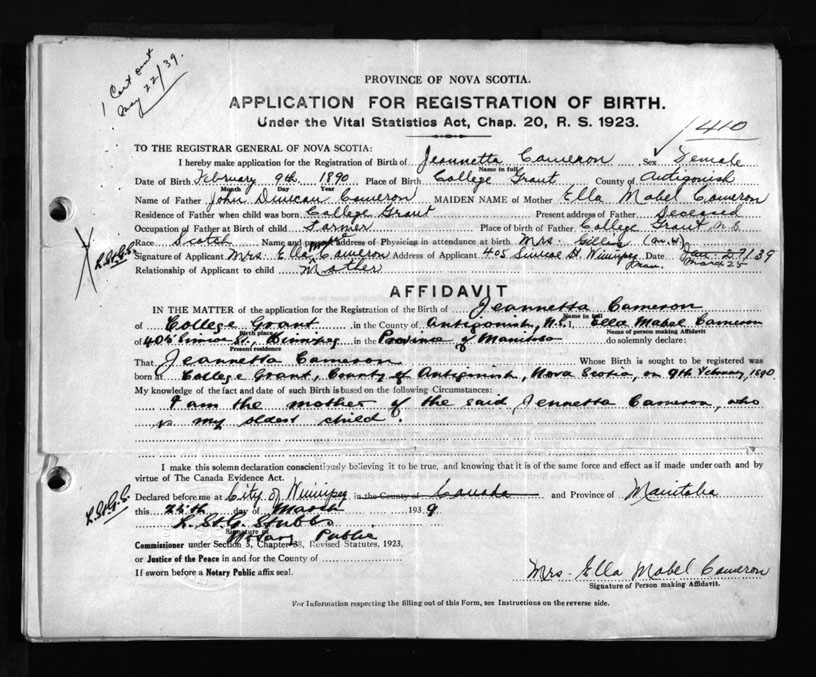 1 Cert out
May 22/39.
PROVINCE OF NOVA SCOTIA.
APPLICATION FOR REGISTRATION OF BIRTH.
Under the Vital Statistics Act, Chap. 20, R. S. 1923.
1410
TO THE REGISTRAR GENERAL OF NOVA SCOTIA:
I hereby make application for the Registration of Birth of Jeannetta Cameron Sex Female
Name in full
Date of Birth February 9th 1890 Place of Birth College Grant County of Antigonish
Month Day Year
Name of Father John Duncan Cameron MAIDEN NAME of Mother Ella Mabel Cameron
Residence of Father when child was born College Grant Present address of Father Deceased
Occupation of Father at Birth of child Farmer Place of birth of Father College Grant, N.S.
Race Scotch Name and present address of Physician in attendance at birth Mrs. Gillis
L.StG.S.
Signature of Applicant Mrs. Ella Cameron Address of Applicant 405 Simcoe St. Winnipeg Man. Date 39
March 25
Relationship of Applicant to child Mother
AFFIDAVIT
IN THE MATTER of the application for the Registration of the Birth of Jeannetta Cameron
Name in full
of College Grant in the County of Antigonish, N.S. I, Ella Mabel Cameron
Birth place Name of person making Affidavit
of 405 Simcoe St., Winnipeg in the Province of Manitoba do solemnly declare:
Present residence
That Jeannetta Cameron Whose Birth is sought to be registered was
born at College Grant, County of Antigonish, Nova Scotia, on 9th February, 1890
My knowledge of the fact and date of such Birth is based on the following Circumstances:
I am the mother of the said Jennetta Cameron, who
is my oldest child.
I make this solemn declaration conscientiously believing it to be true, and knowing that it is of the same force and effect as if made under oath and by
virtue of The Canada Evidence Act.
L.StG.S.
Declared before me at City of Winnipeg in the County of Canada and Province of Manitoba
this 25th day of March 1939
L. St.G. Stubbs
Signature of
Notary Public
Commissioner under Section 3, Chapter 38, Revised Statutes, 1923,
or Justice of the Peace in and for the County of
If sworn before a Notary Public affix seal.
Mrs. Ella Mabel Cameron
Signature of Person making Affidavit.
For Information respecting the filling out of this Form, see Instructions on the reverse side.